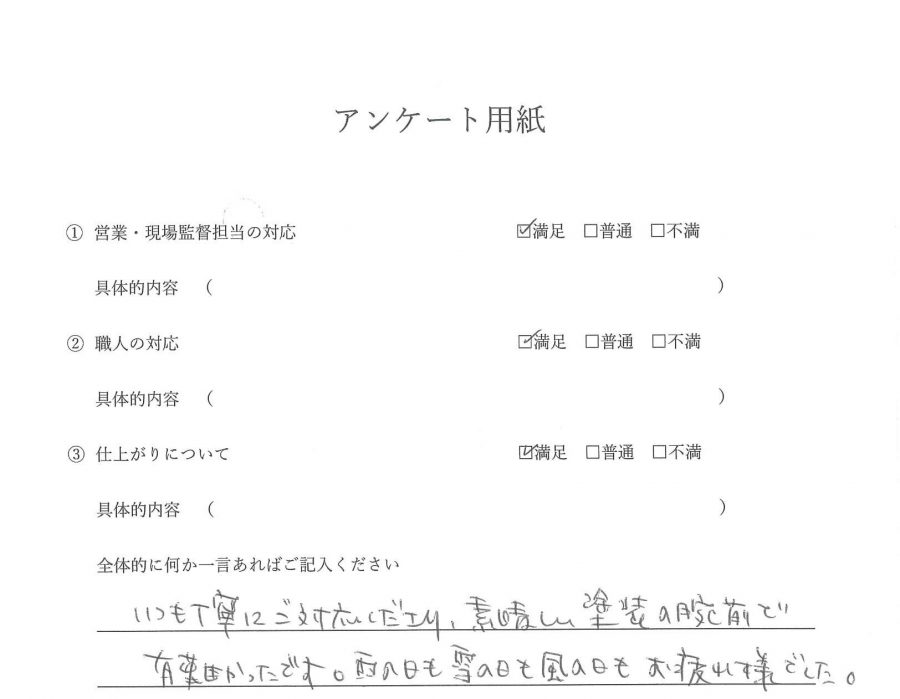 アンケート用紙
① 営業・現場監督担当の対応 ☑満足 □普通 □不満
具体的内容 ( )
② 職人の対応 ☑満足 □普通 □不満
具体的内容 ( )
③ 仕上がりについて ☑満足 □普通 □不満
具体的内容 ( )
全体的に何か一言あればご記入ください
いつも丁寧にご対応くださり、素晴しい塗装の腕前で
かったです。雨の日も雪の日も風の日もお疲れ様でした。